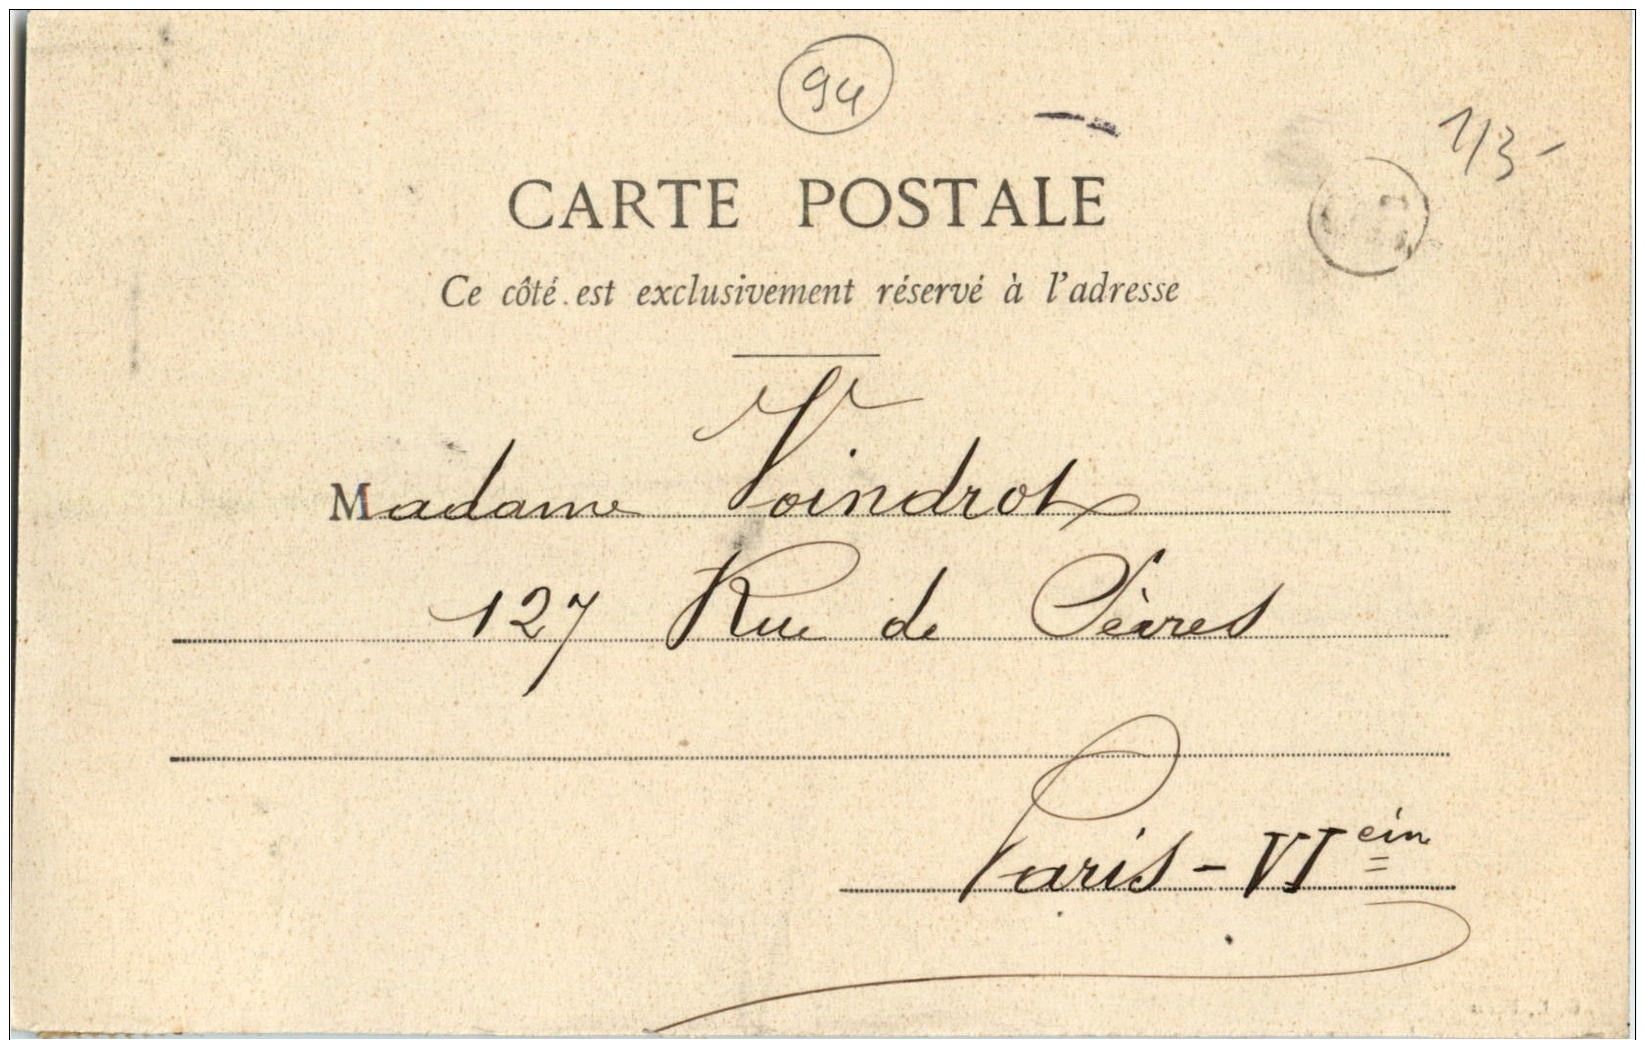 94
1/3-
CARTE POSTALE
Ce côté est exclusivement réservé à l'adresse
Madame Voindrot
127 Rue de Sèvres
Paris - VIein